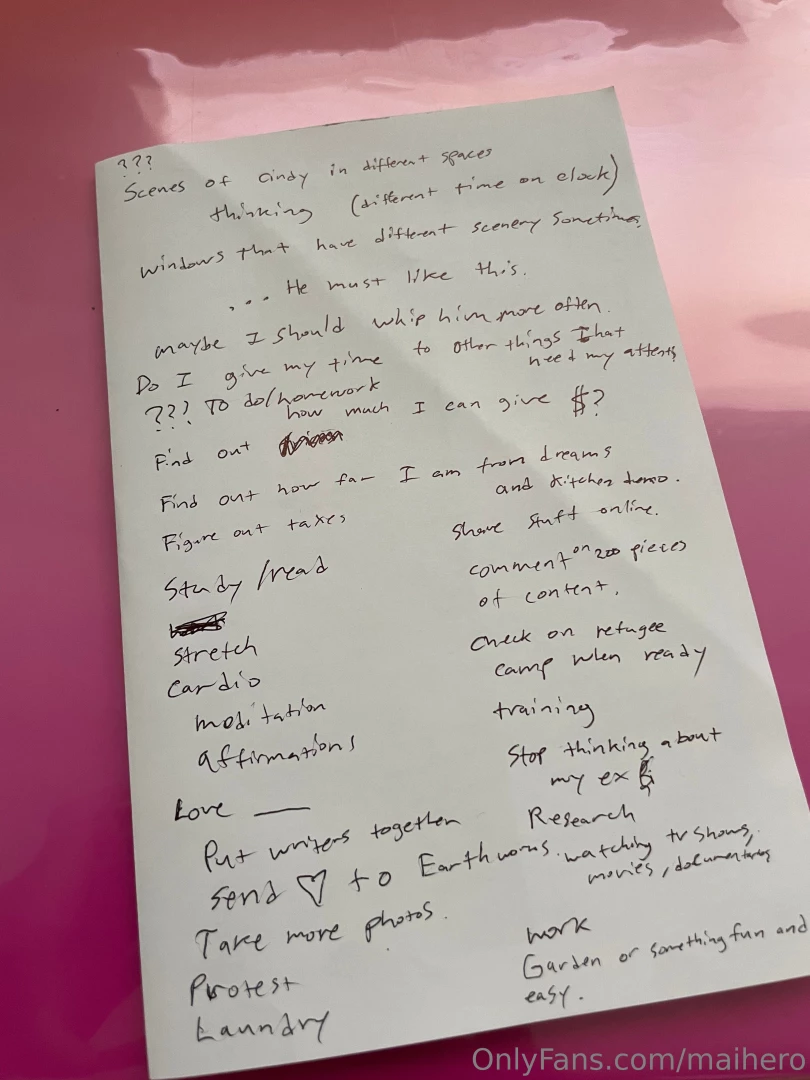 ???
Scenes of Cindy in different spaces
thinking (different time on clock)
windows that have different scenery sometimes.
... He must like this.
maybe I should whip him more often.
Do I give my time to other things that
need my attenti
??? To do/homework
how much I can give $?
Find out
Find out how far I am from dreams
and kitchen demo.
Figure out taxes
Study/read
stretch
cardio
meditation
affirmations
Love ___
Put writers together
Send ♡ to Earthworms.
Take more photos.
Protest
Laundry
share stuff online.
comment on 200 pieces
of content.
check on refugee
camp when ready
training
Stop thinking about
my ex
Research
watching tv shows,
movies, documentaries
work
Garden or something fun and
easy.
OnlyFans.com/maihero